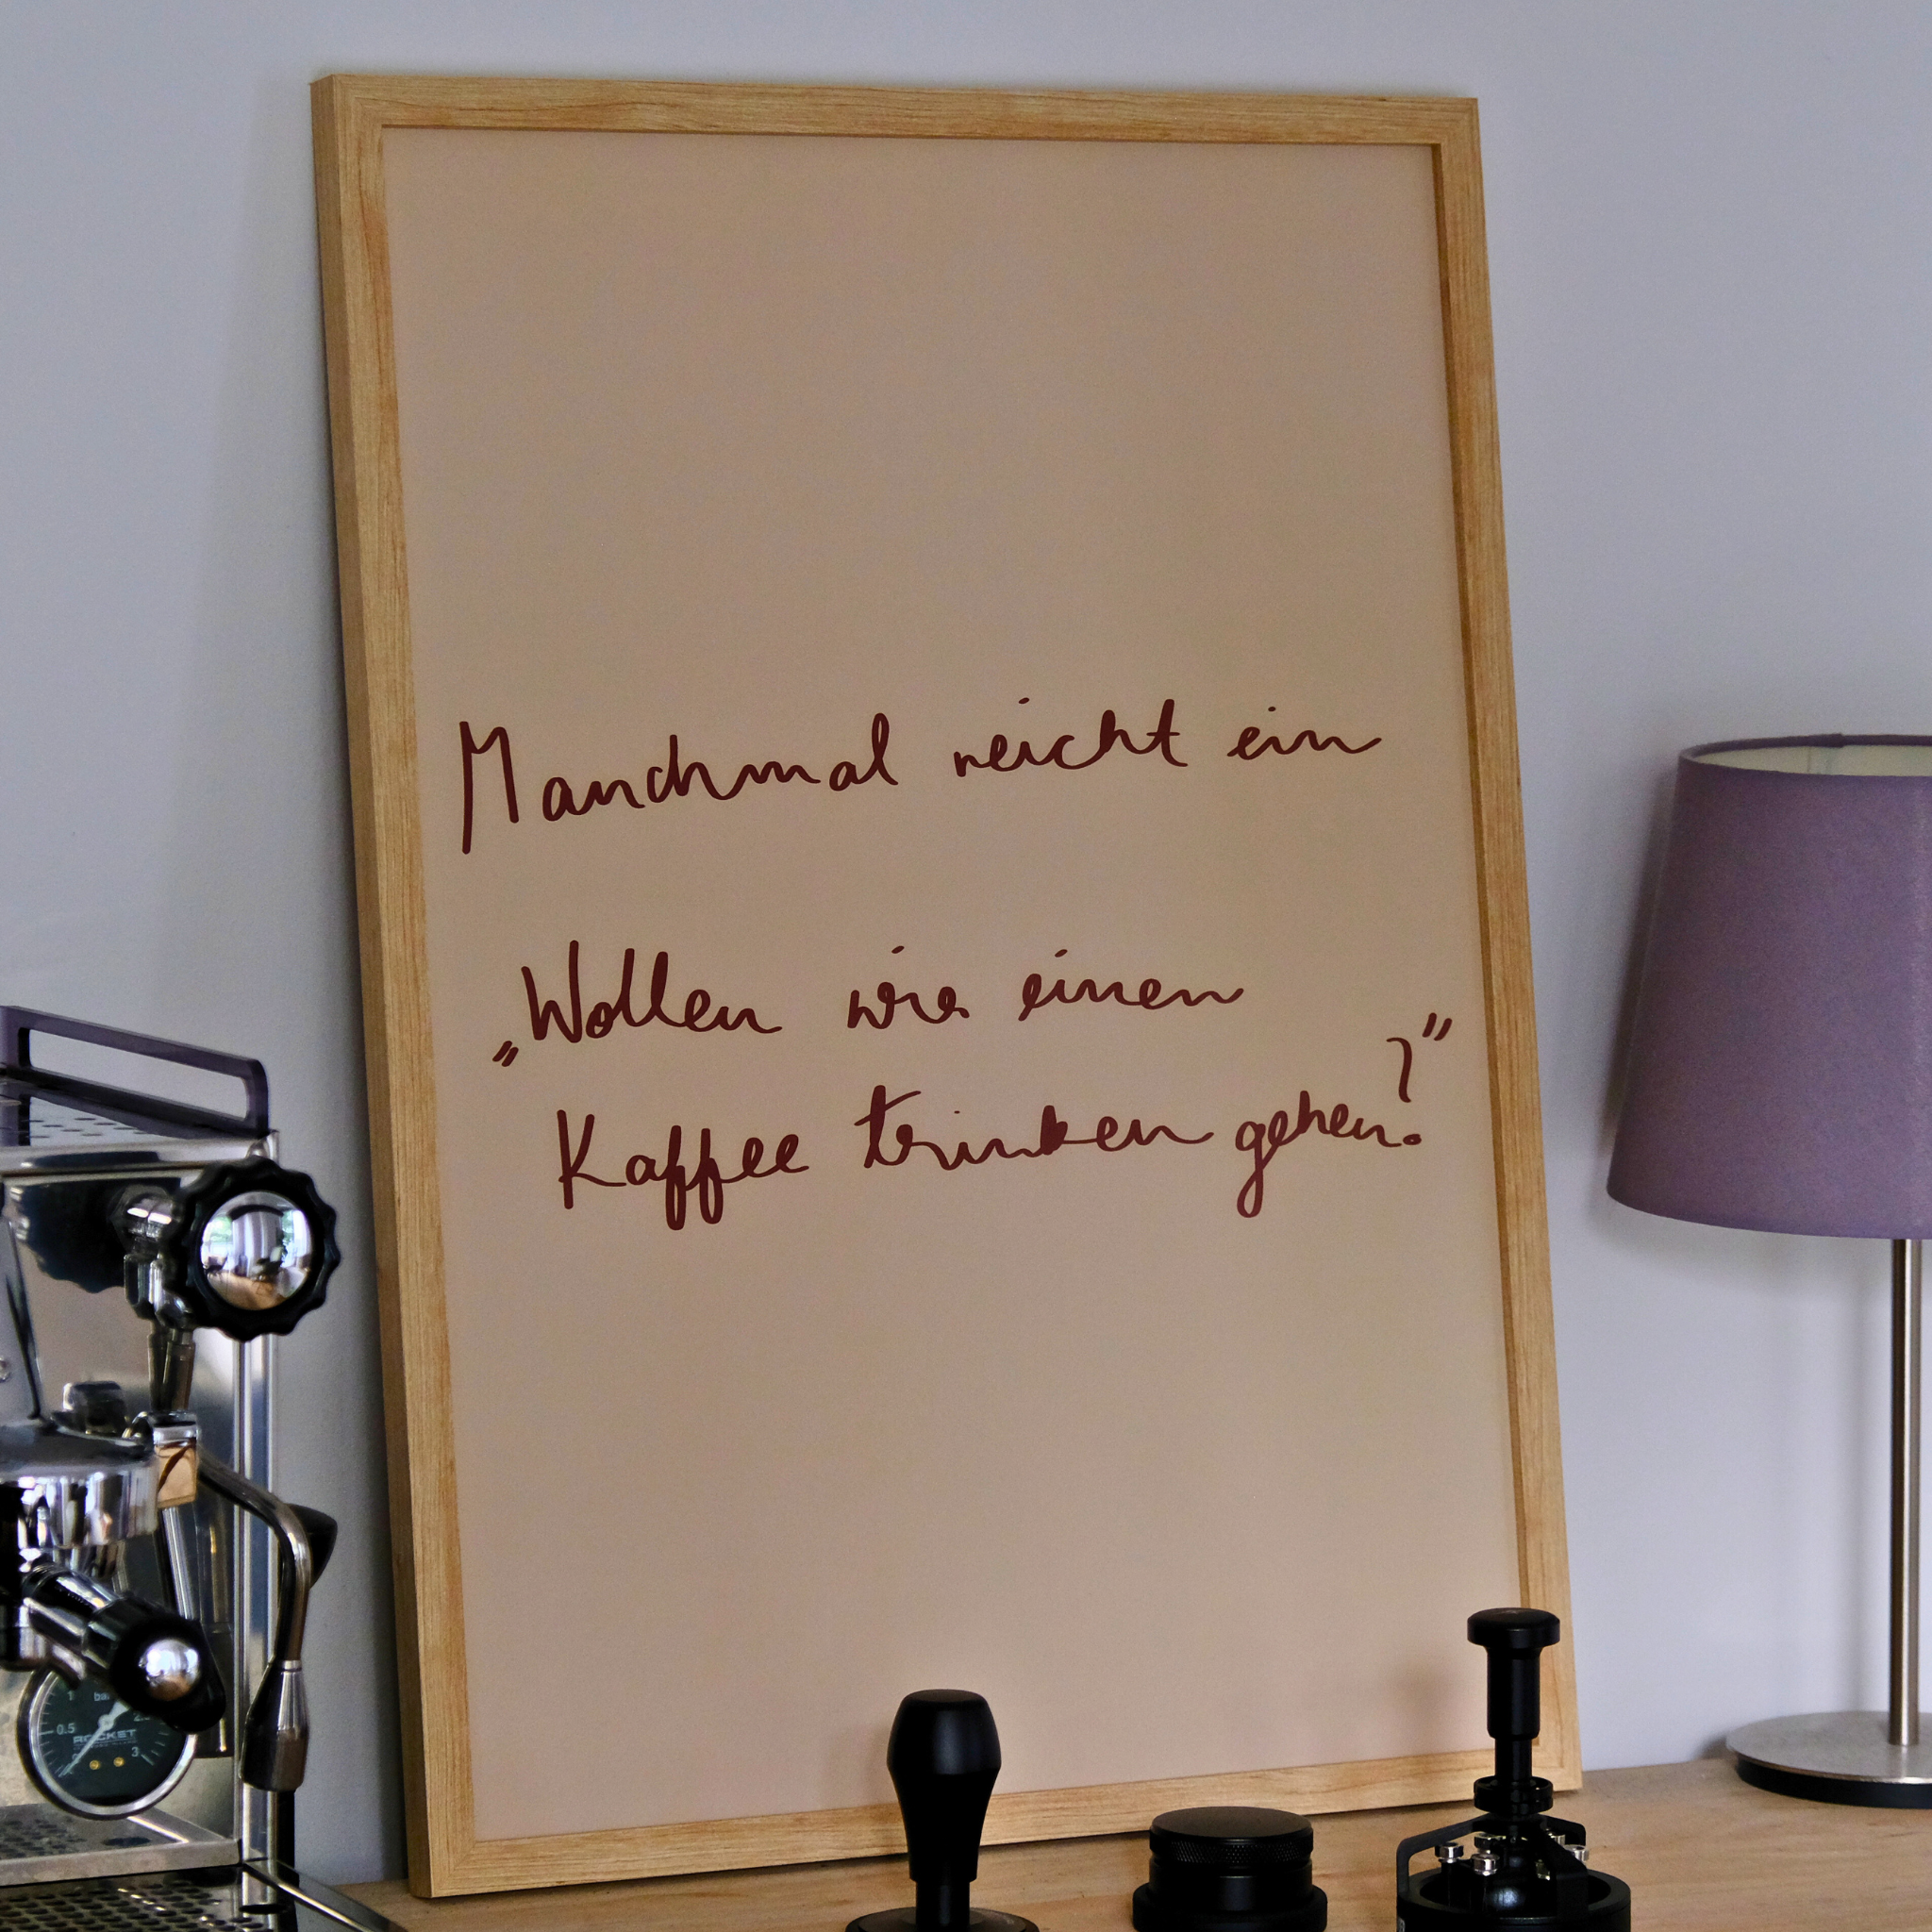 Manchmal reicht ein
„Wollen wir einen
Kaffee trinken gehen?"
1 bar
0.5
ROCKET
3